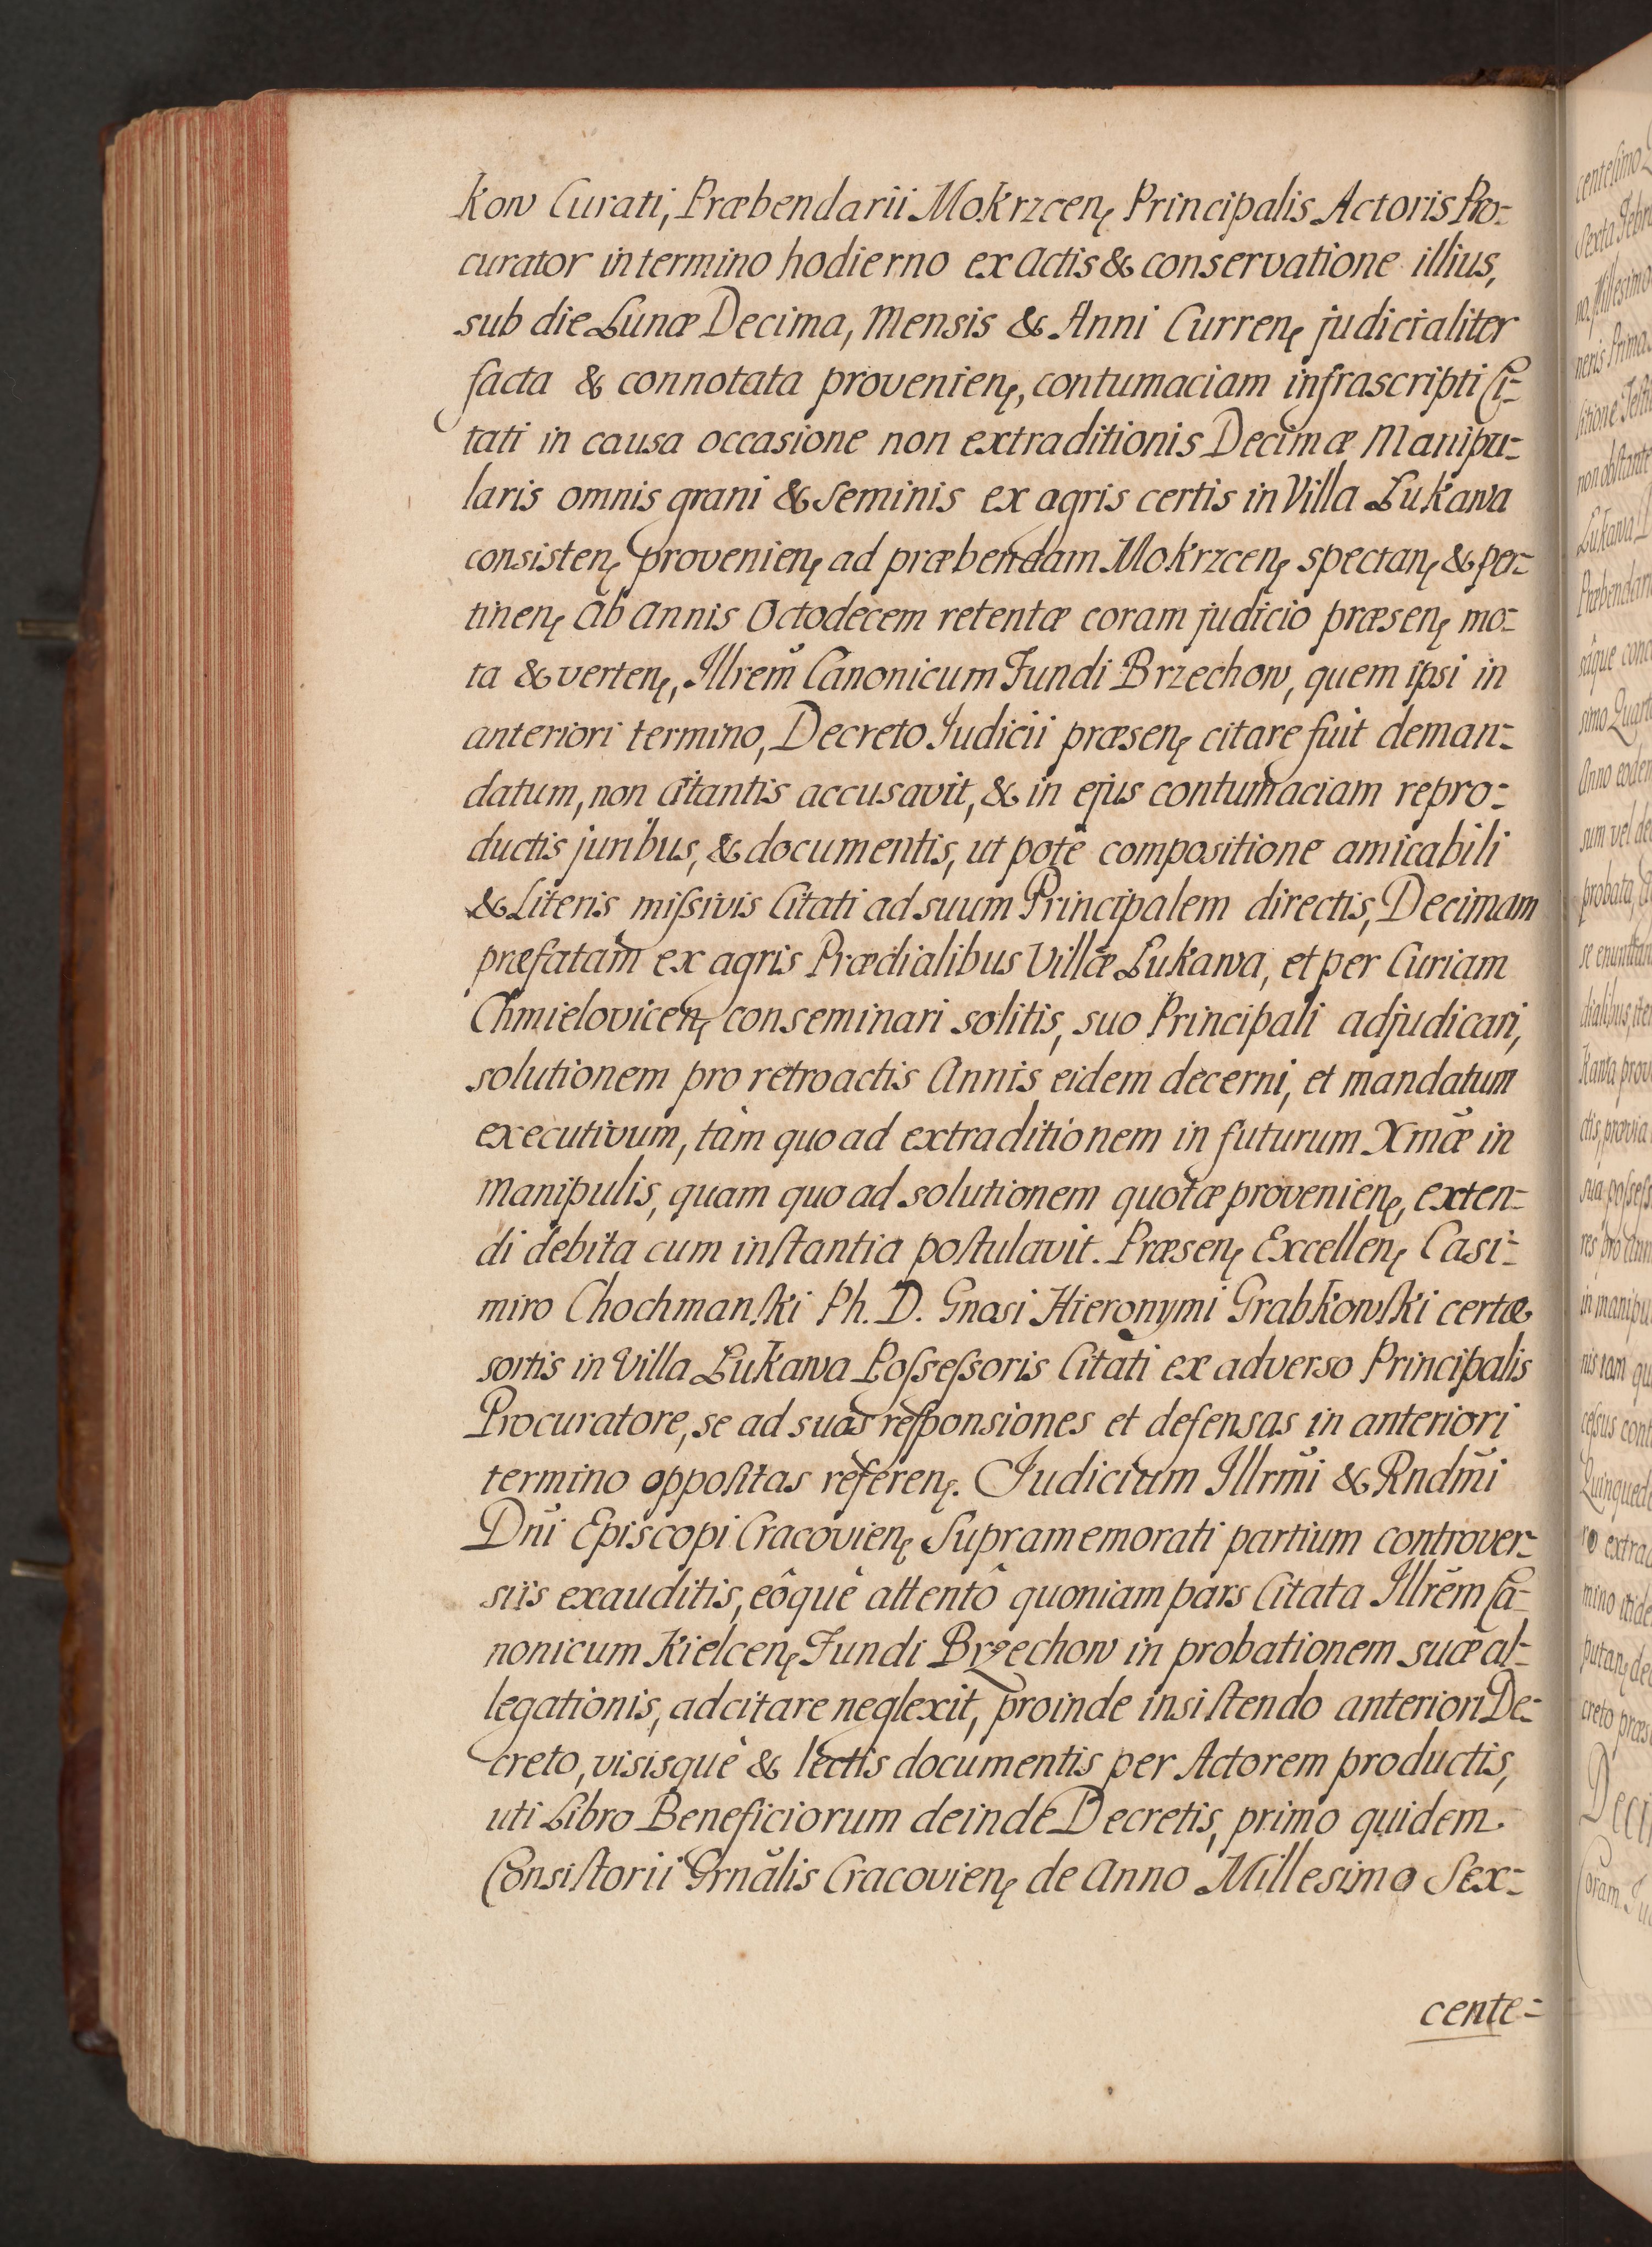 kow Curati, Præbendarii Mokrzcenę Principalis Actoris Pro=
curator in termino hodierno ex Actis & conservatione illius,
sub die Lunæ Decima, Mensis & Anni Currenę judicialiter
facta & connotata provenienę, contumaciam infrascripti Ci=
tati in causa occasione non extraditionis Decimæ Manipu=
laris omnis grani & seminis ex agris certis in Villa Łukawa
consistenę provenienę ad præbendam Mokrzcenę spectanę & per=
tinenę ab Annis Octodecem retentæ coram judicio præsenę mo=
ta & vertenę, Illrem̃ Canonicum Fundi Brzechow, quem ipsi in
anteriori termino, Decreto Iudicii præsenę citare fuit deman=
datum, non citantis accusavit, & in ejus contumaciam repro=
ductis juribus, & documentis, ut potè compositione amicabili
& Literis miſsivis Citati ad suum Principalem directis, Decimam
præfatam ex agris Prædialibus Villæ Łukawa, et per Curiam
Chmielovicenę conseminari solitis, suo Principali adjudicari,
solutionem pro retroactis Annis eidem decerni, et mandatum
executivum, tàm quo ad extraditionem in futurum Xmæ̃ in
manipulis, quam quo ad solutionem quotæ provenienę, exten=
di debita cum inſtantia poſtulavit. Præsenę Excellenę Casi=
miro Chochmanſki Ph. D. Gnosi Hieronymi Grabkowſki certæ
sortis in Villa Łukawa Poſseſsoris Citati ex adverso Principalis
Procuratore, se ad suas reſponsiones et defensas in anteriori
termino oppoſitas referenę. Iudicium Illrm̃i & Rndm̃i
Dñi Episcopi Cracovienę Supramemorati partium controver=
siis exauditis, eôquè attentô quoniam pars Citata Illrẽm Ca=
nonicum Kielcenę Fundi Brzechow in probationem suæ al=
legationis, adcitare neglexit, proinde insiſtendo anteriori De=
creto, visisquè & lectis documentis per Actorem productis,
uti Libro Beneficiorum deinde Decretis, primo quidem
Consiſtorii Grnãlis Cracovienę de Anno Millesimo Sex=
cente=